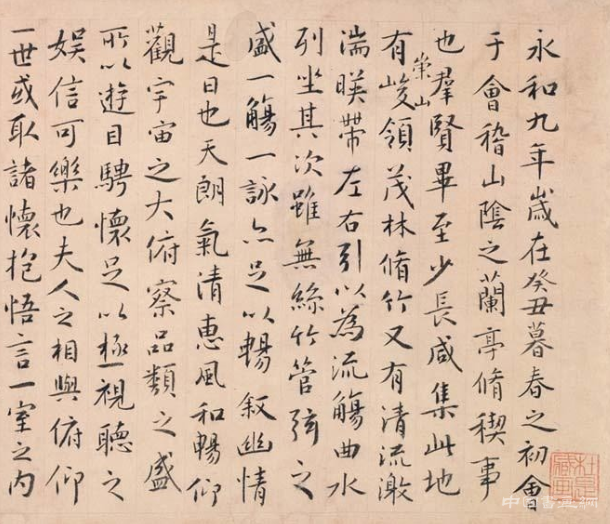 永和九年歲在癸丑暮春之初會
于會稽山陰之蘭亭脩稧事
也羣賢畢至少長咸集此地
有崇山峻領茂林脩竹又有清流激
湍暎帶左右引以為流觴曲水
列坐其次雖無絲竹管弦之
盛一觴一詠亦足以暢叙幽情
是日也天朗氣清惠風和暢仰
觀宇宙之大俯察品類之盛
所以遊目騁懷足以極視聽之
娛信可樂也夫人之相與俯仰
一世或取諸懷抱悟言一室之內